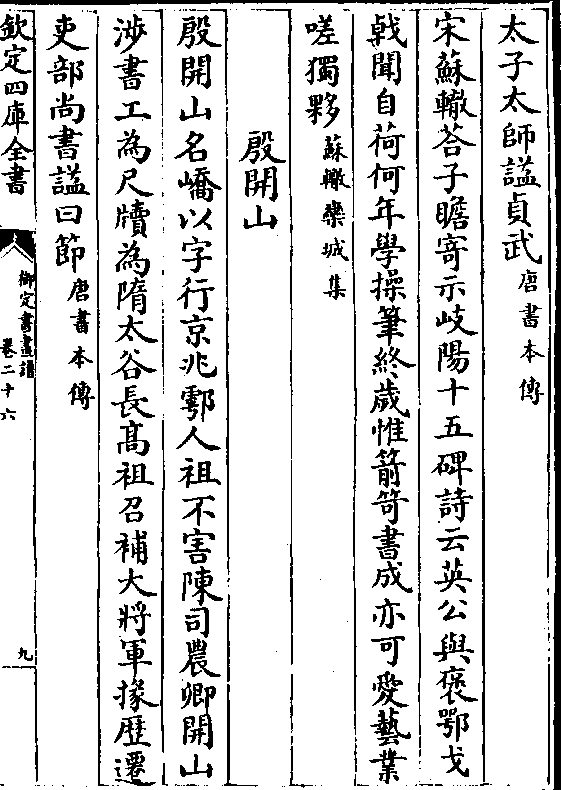 太子太師諡貞武唐書本傳
宋蘇轍荅子瞻寄示岐陽十五碑詩云英公與褒鄂戈
戟聞自荷何年學操筆終歲惟箭笴書成亦可愛藝業
嗟獨夥蘇轍欒城集
殷開山
殷開山名嶠以字行京兆鄠人祖不害陳司農卿開山
渉書工為尺牘為隋太谷長髙祖召補大將軍掾歴遷
吏部尚書諡曰節唐書本傳
欽定四庫全書
御定書畫譜
卷二十六
九